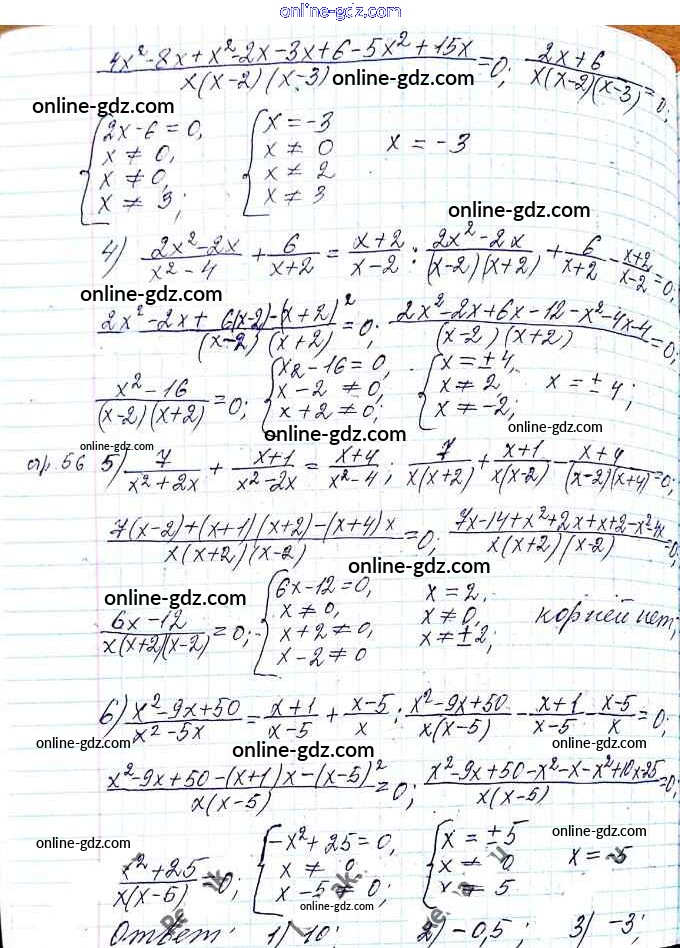 online-gdz.com
4x²-8x+x²-2x-3x+6-5x²+15x / x(x-2)(x-3) =0; 2x+6 / x(x-2)(x-3) =0;
online-gdz.com
online-gdz.com
{2x-6=0, {x=-3
x≠0, x≠0 x=-3
x≠0, x≠2
x≠3; x≠3
online-gdz.com
online-gdz.com
4) 2x²-2x / x²-4 + 6 / x+2 = x+2 / x-2 ; 2x²-2x / (x-2)(x+2) + 6 / x+2 - x+2 / x-2 =0;
online-gdz.com
2x²-2x+6(x-2)-(x+2)² / (x-2)(x+2) =0; 2x²-2x+6x-12-x²-4x-4 / (x-2)(x+2) =0;
online-gdz.com
online-gdz.com
x²-16 / (x-2)(x+2) =0; {x2-16=0, {x=±4,
x-2≠0, x≠2, x=±4;
x+2≠0; x≠-2;
online-gdz.com
online-gdz.com
online-gdz.com
стр. 56 5) 7 / x²+2x + x+1 / x²-2x = x+4 / x²-4 ; 7 / x(x+2) + x+1 / x(x-2) - x+4 / (x-2)(x+4) =0;
7(x-2)+(x+1)(x+2)-(x+4)x / x(x+2)(x-2) =0; 7x-14+x²+2x+x+2-x²-4x / x(x+2)(x-2) =0;
online-gdz.com
online-gdz.com
6x-12 / x(x+2)(x-2) =0; {6x-12=0, x=2,
x≠0, x≠0, корней нет;
x+2≠0, x≠±2;
x-2≠0
online-gdz.com
online-gdz.com
6) x²-9x+50 / x²-5x = x+1 / x-5 + x-5 / x ; x²-9x+50 / x(x-5) - x+1 / x-5 - x-5 / x =0;
online-gdz.com
online-gdz.com
online-gdz.com
x²-9x+50-(x+1)x-(x-5)² / x(x-5) =0; x²-9x+50-x²-x-x²+10x-25 / x(x-5) =0;
online-gdz.com
online-gdz.com
online-gdz.com
x²+25 / x(x-5) =0; {-x²+25=0, {x=±5
x≠0 x≠0 x=-5
x-5≠0; x≠5
online-gdz.com
Ответ: 1) 10; 2) -0,5; 3) -3;